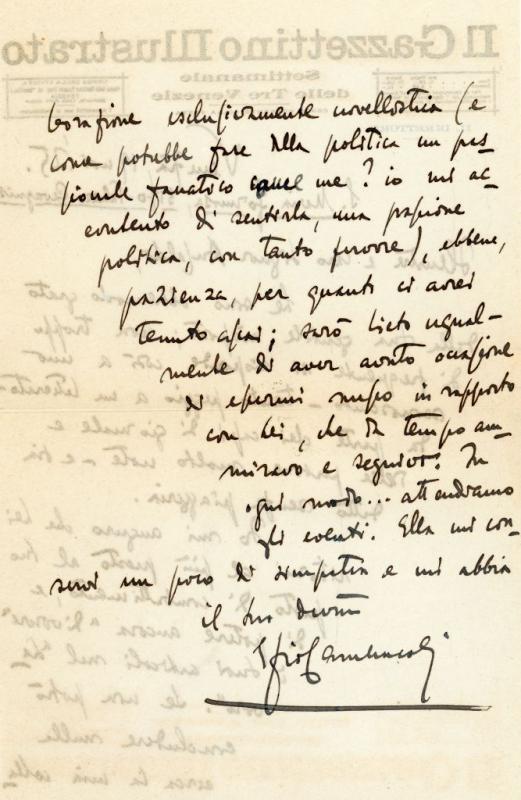 borazione esclusivamente novellistica (e
come potrebbe fare della politica un pas-
sionale fanatico come me? io mi ac-
contento di sentirla, una passione
politica, con tanto fervore), ebbene,
pazienza, per quanto ci avrei
tenuto assai; sarò lieto ugual-
mente di aver avuto occasione
di essermi messo in rapporto
con Lei, che da tempo am-
miravo e seguivo. In
ogni modo... attendiamo
gli eventi. Ella mi con-
servi un poco di simpatia e mi abbia
il suo